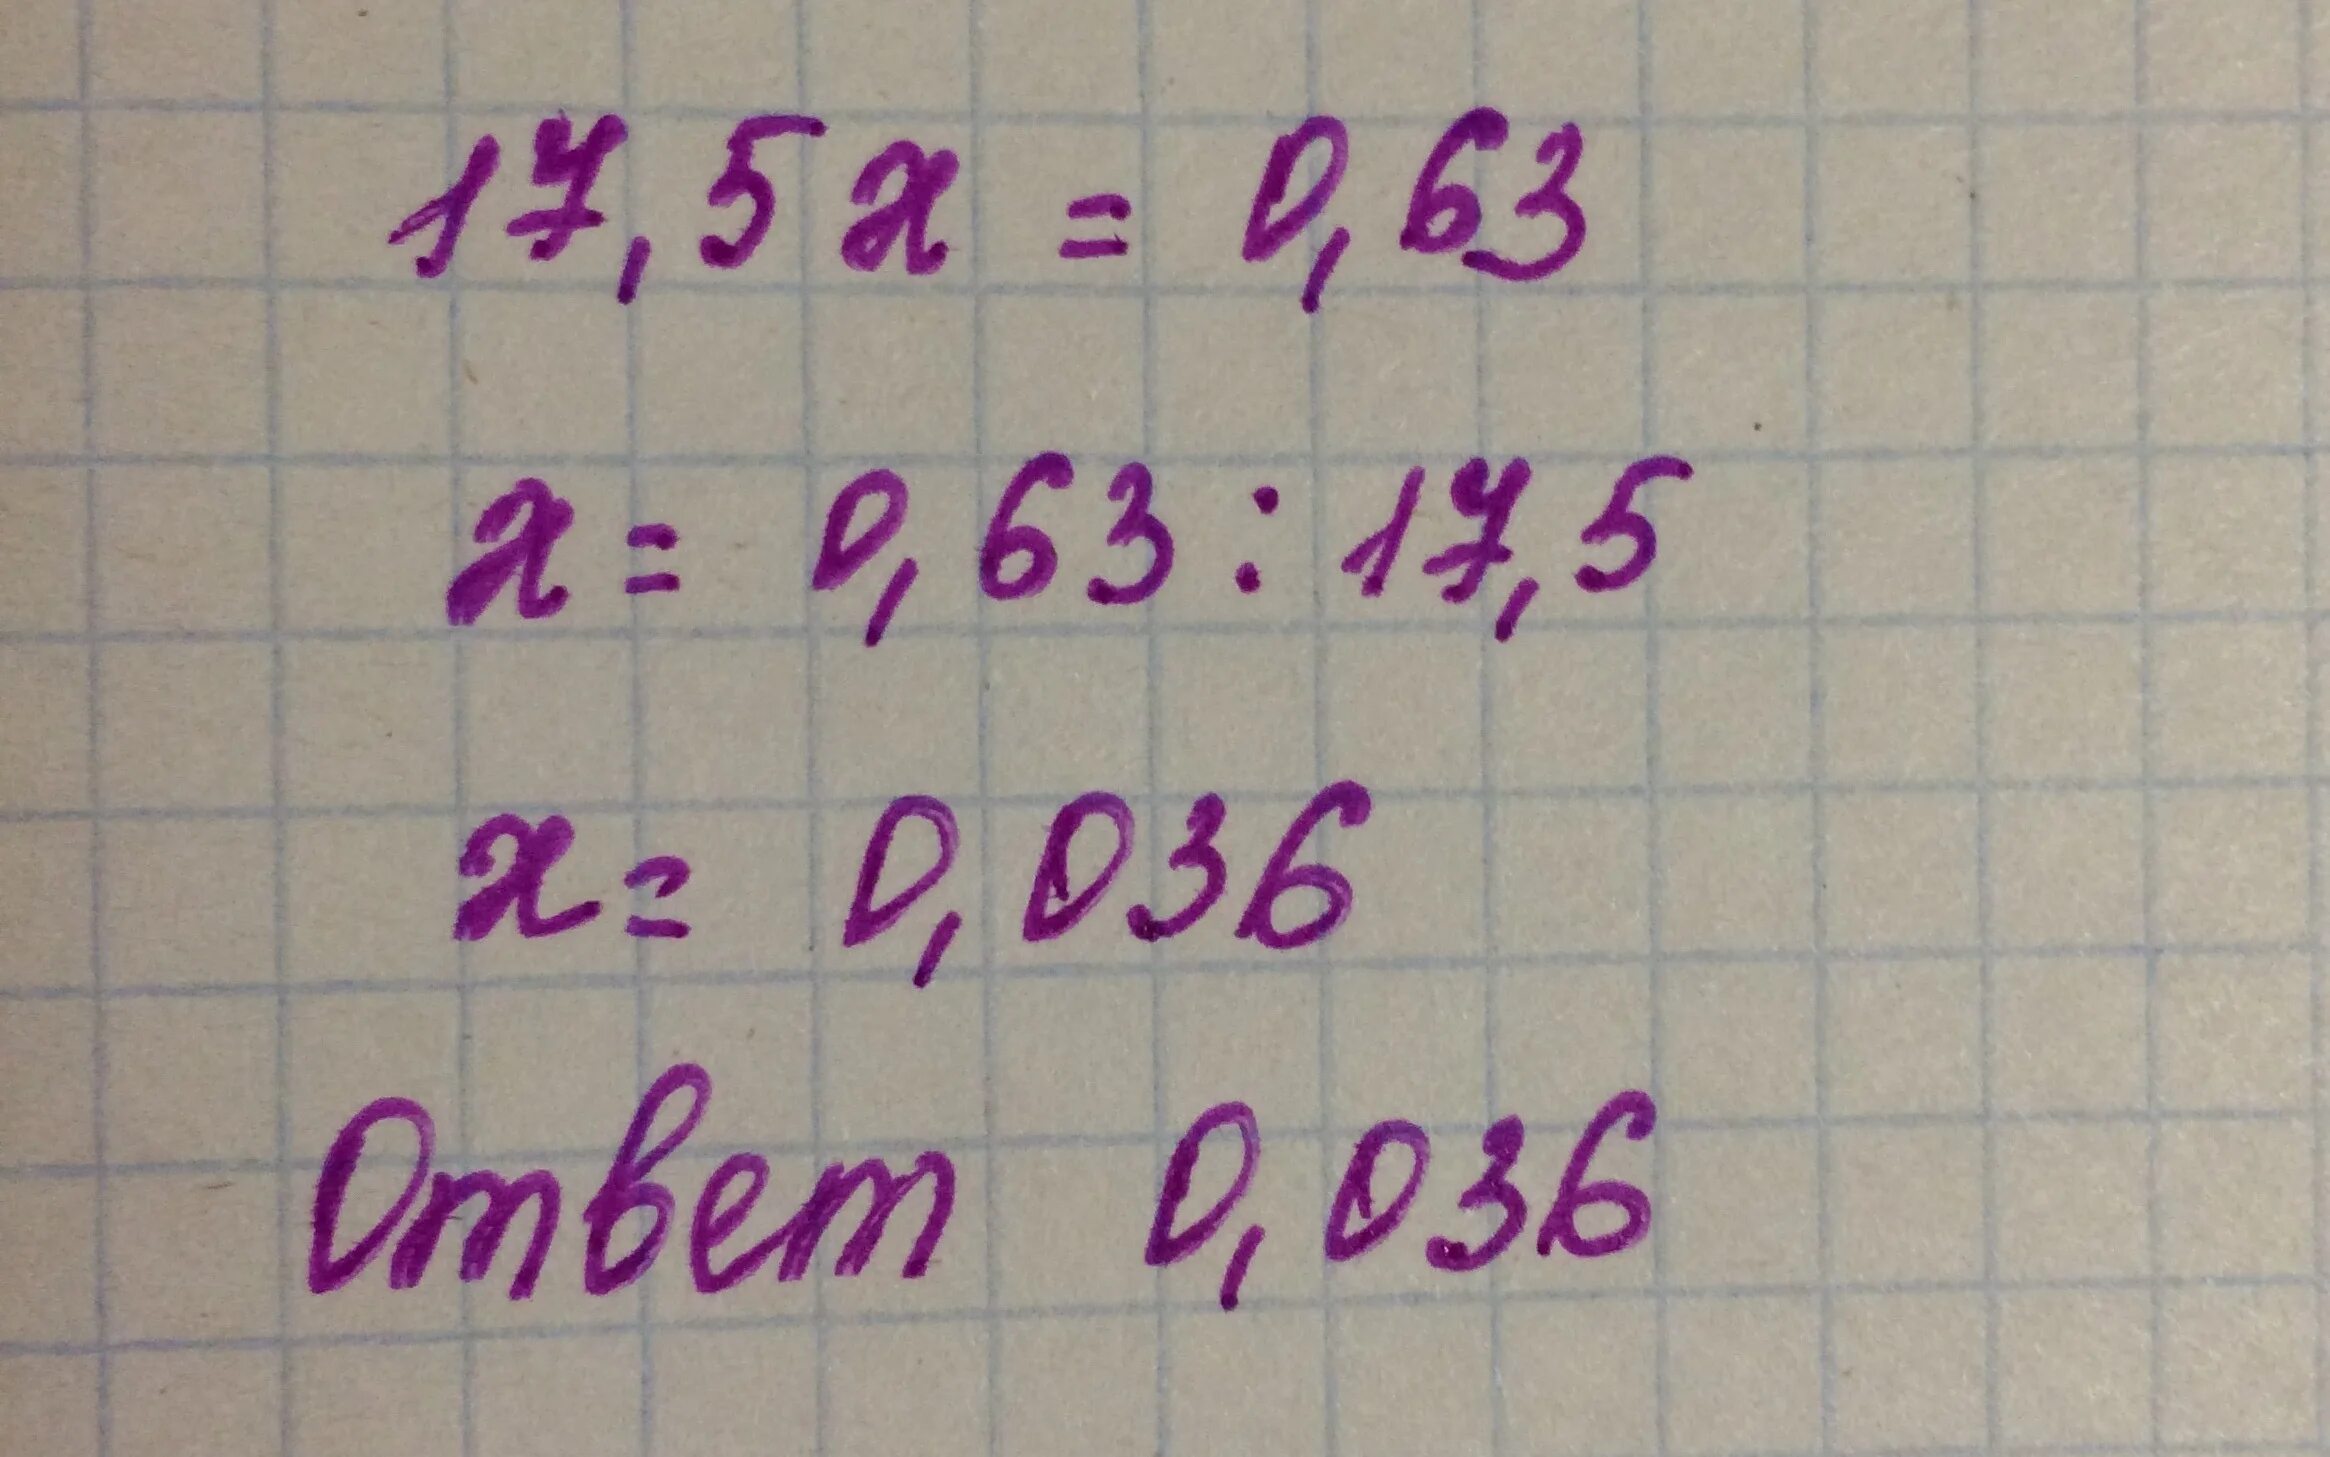 17,5x = 0,63
x = 0,63 : 17,5
x = 0,036
Ответ 0,036